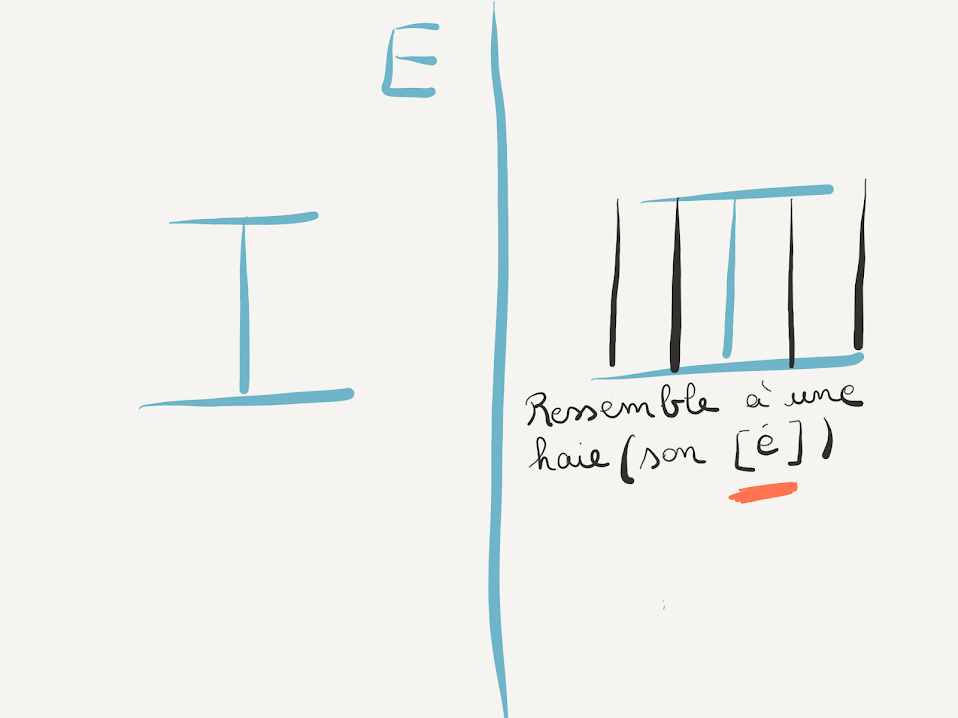 E
エ
Ressemble à une
haie (son [é])